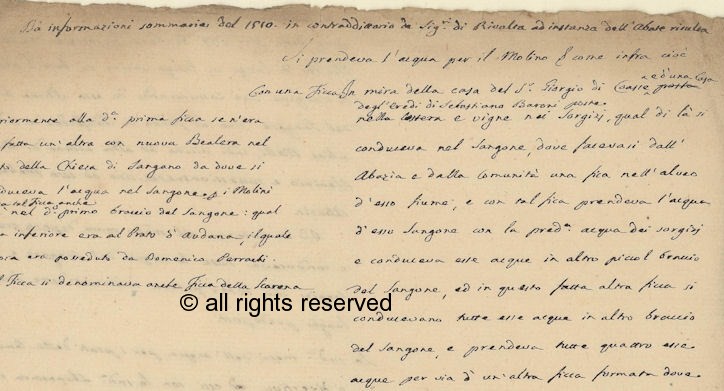 Da informazioni sommarie del 1510. in contradditorio de Sigri. di Rivalta ad instanza dell'Abate risulta
Si prendeva l'acqua per il Molino come infra cioè
Con una Ficca In mira della casa del Sr. Giorgio di Coasse posta
e d'una Casa
degl'Eredi di Sebastiano Baroni poste
nella costera e vigne nei sorgisi, qual di là si
conduceva nel Sangone, dove facevasi dall'
Abazia e dalla comunità una fica nell'alveo
d'esso fiume, e con tal fica prendeva l'acqua
d'esso Sangone con la preda. acqua dei sorgisi
e conduceva esse acque in altro piccol braccio
del Sangone, ed in questo fatta altra fica si
conducevano tutte esse acque in altro braccio
del Sangone, e prendeva tutte quattro esse
acque per via d'un'altra fica formata dove
riormente alla da. prima fica se n'era
fatta un'altra con nuova Bealera nel
to della Chiesa di Sangano da dove si
duceva l'acqua nel Sangone, i Molini
a tal Fica anche
nel do. primo braccio del Sangone: qual
a inferiore era al Prato d'Audana, il quale
ora era posseduto da Domenica Perrachi.
l Fica si denominava anche Ficca della Scarena
© all rights reserved